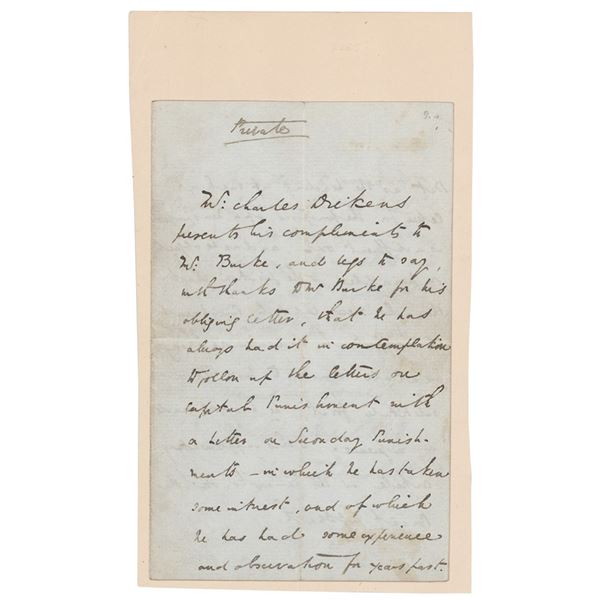 Private
Mr. Charles Dickens
presents his compliments to
Mr. Burke, and begs to say,
with thanks to Mr Burke for his
obliging letter, that he has
always had it in contemplation
to follow up the letters on
capital Punishment with
a letter on Secondary Punish-
ments – in which he has taken
some interest, and of which
he has had some experience
and observation for years past.